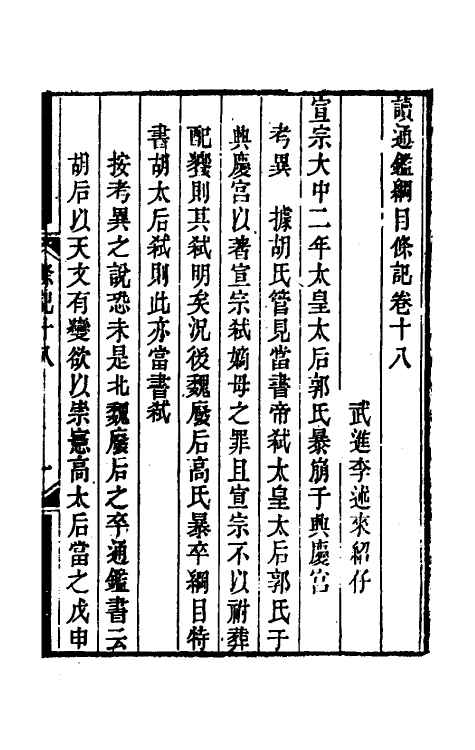 讀通鑑綱目條記卷十八
武進李述來紹仔
宣宗大中二年太皇太后郭氏暴崩于興慶宮
考異　據胡氏管見當書帝弒太皇太后郭氏于
興慶宮以著宣宗弒嫡母之罪且宣宗不以祔葬
配獿則其弒明矣況後魏廢后高氏暴卒綱目特
書胡太后弒則此亦當書弒
按考異之說恐未是北魏廢后之卒通鑑書云
胡后以天文有變欲以崇憲高太后當之戊申
條記十八
一